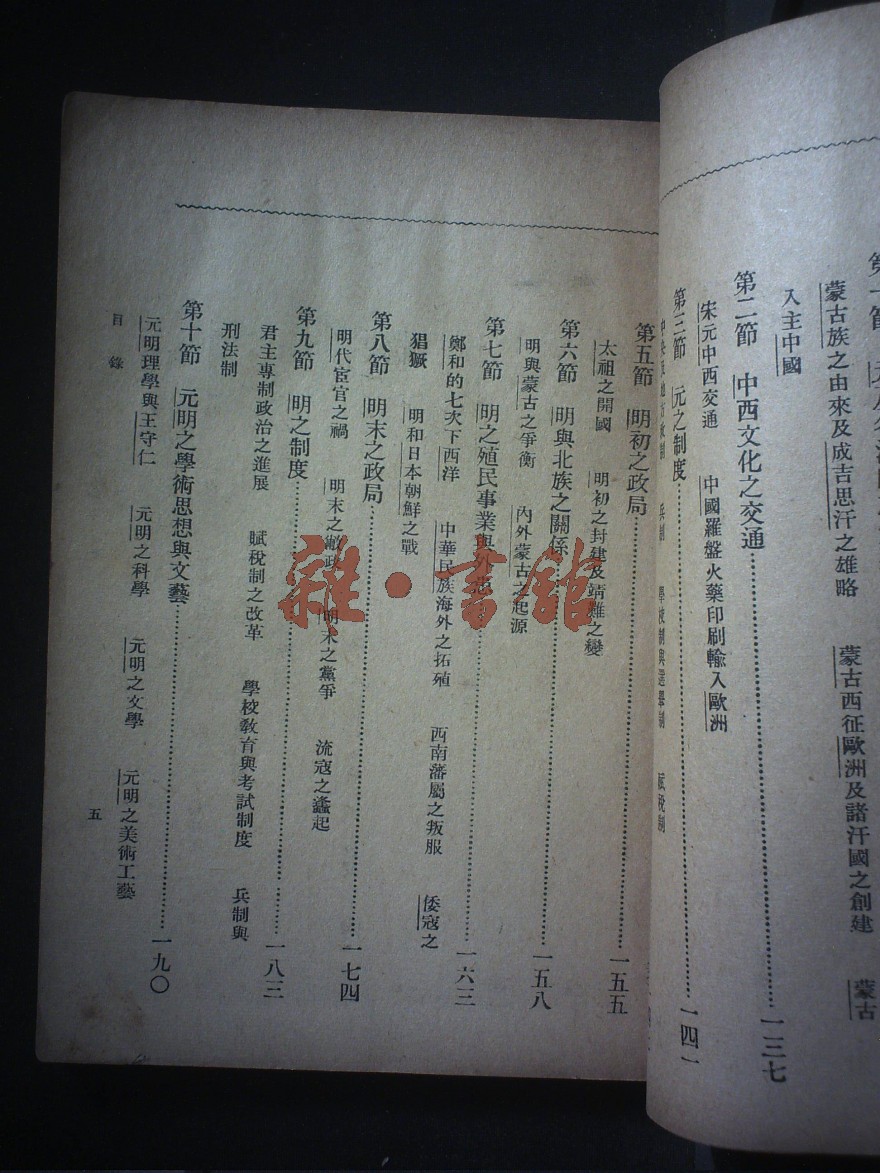 蒙古族之由來及成吉思汗之雄略　蒙古西征歐洲及諸汗國之創建　蒙古
入主中國
第二節　中西文化之交通……一三七
宋元中西交通　中國羅盤火藥印刷輸入歐洲
第三節　元之制度……一四一
兵制　學校制與選舉制　賦稅制
第五節　明初之政局……一五五
太祖之開國　明初之封建及靖難之變
第六節　明與北族之關係……一五八
明與蒙古之爭衡　內外蒙古之起源
第七節　明之殖民事業與外患……一六三
鄭和的七次下西洋　中華民族海外之拓殖　西南藩屬之叛服　倭寇之
猖獗　明和日本朝鮮之戰
第八節　明末之政局……一七四
明代宦官之禍　明末之敝政　明末之黨爭　流寇之蠭起
第九節　明之制度……一八三
君主專制政治之進展　賦稅制之改革　學校教育與考試制度　兵制與
刑法制
第十節　元明之學術思想與文藝……一九〇
元明理學與王守仁　元明之科學　元明之文學　元明之美術工藝
目錄　五
雜·書館